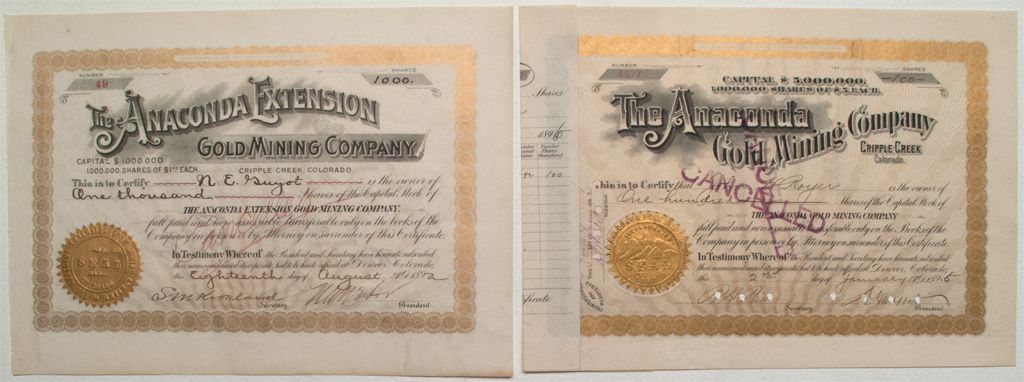 NUMBER
49
SHARES
1000.
The Anaconda Extension
Gold Mining Company
CAPITAL $1000.000
1000.000 SHARES OF $1.00 EACH. CRIPPLE CREEK, COLORADO.
This is to Certify N. E. Guyot is the owner of
One thousand Shares of the Capital Stock of
THE ANACONDA EXTENSION GOLD MINING COMPANY
full paid and non assessable transferable only on the books of the
Company in person or by Attorney on surrender of this Certificate.
In Testimony Whereof the President and Secretary have hereunto subscribed
their names and caused the corporate seal to be hereto affixed at Denver, Colorado,
this Eighteenth day of August
SEAL
Secretary.
President.
Shares
1896
Number Shares
100
NUMBER
SHARES
100
CAPITAL $ 5,000,000.
1,000,000 SHARES OF $5 EACH.
The Anaconda
Gold Mining Company
CRIPPLE CREEK
Colorado.
This is to Certify that Royer is the owner of
One hundred Shares of the Capital Stock of
THE ANACONDA GOLD MINING COMPANY
full paid and non assessable transferable only on the Books of the
Company in person or by Attorney on surrender of this Certificate.
In Testimony Whereof the President and Secretary have hereunto subscribed
their names and caused the corporate seal to be hereto affixed at Denver, Colorado,
this 2nd day of January
Secretary.
President.
CANCELLED